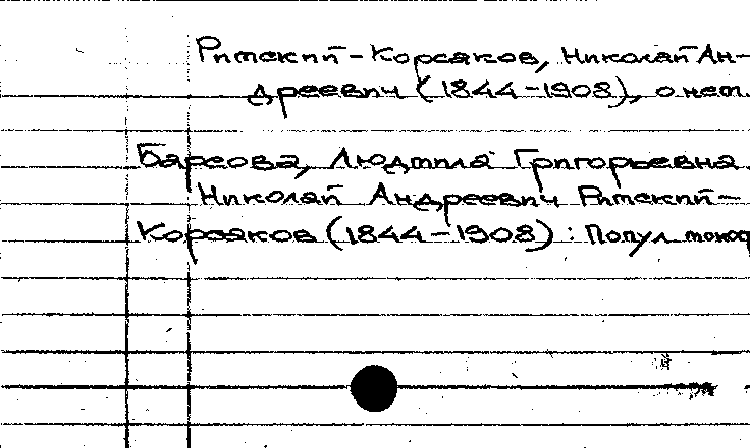 Римский-Корсаков, Николай Ан-
дреевич (1844-1908), о нем.
Барсова, Людмила Григорьевна
Николай Андреевич Римский-
Корсаков (1844-1908): Попул. моног